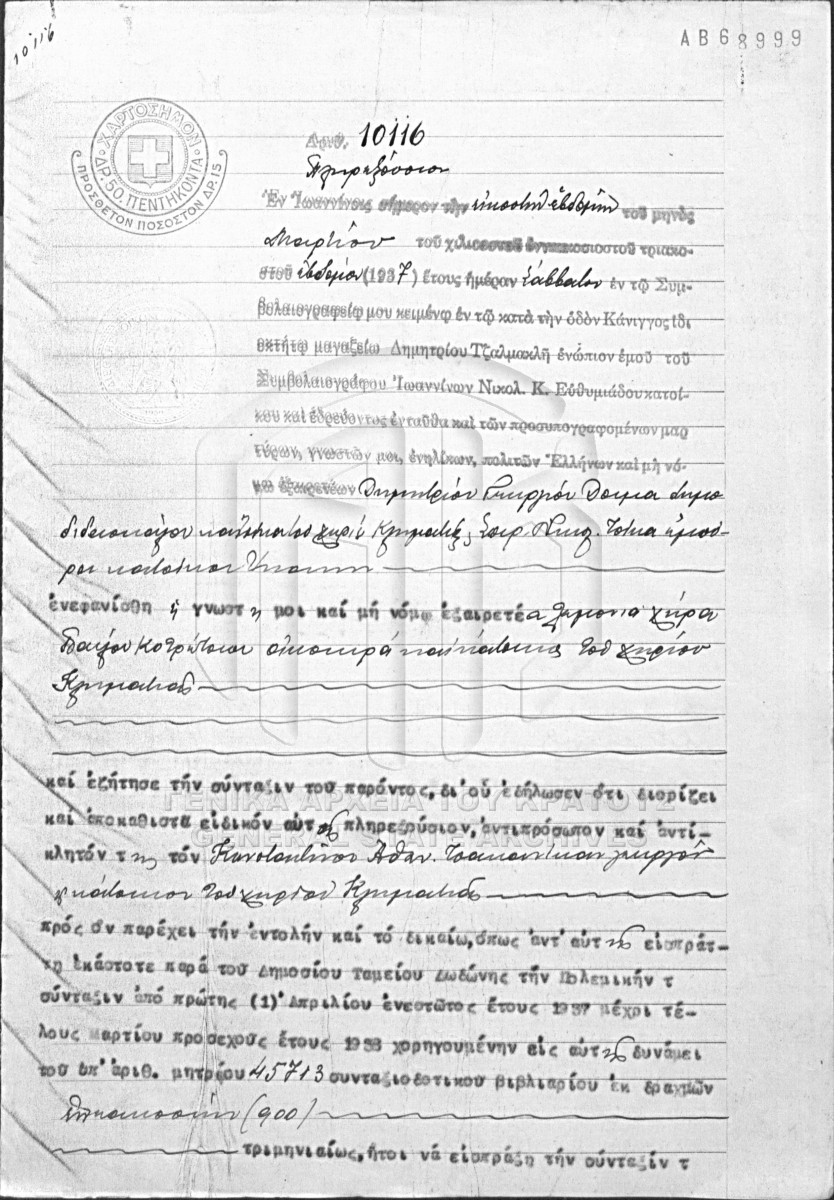 10116
ΑΒ68999
ΧΑΡΤΟΣΗΜΟΝ
ΔΡ. 50. ΠΕΝΤΗΚΟΝΤΑ
ΠΡΟΣΘΕΤΟΝ ΠΟΣΟΣΤΟΝ ΔΡ. 15
Αριθ. 10116
Πληρεξούσιον
Ἐν Ἰωαννίνοις σήμερον τὴν εἰκοστὴν ἑβδόμην τοῦ μηνὸς
Μαρτίου τοῦ χιλιοστοῦ ἐννεακοσιοστοῦ τριακο-
στοῦ ἑβδόμου (1937) ἔτους ἡμέραν Σάββατον ἐν τῷ Συμ-
βολαιογραφείῳ μου κειμένῳ ἐν τῷ κατὰ τὴν ὁδὸν Κάνιγγος ἰδι
οκτήτῳ μαγαζείῳ Δημητρίου Τζαλμακλῆ ἐνώπιον ἐμοῦ τοῦ
Συμβολαιογράφου Ἰωαννίνων Νικολ. Κ. Εὐθυμιάδου κατοί-
κου καὶ ἑδρεύοντος ἐνταῦθα καὶ τῶν προσυπογραφομένων μαρ
τύρων, γνωστῶν μοι, ἐνηλίκων, πολιτῶν Ἑλλήνων καὶ μὴ νό-
μῳ ἐξαιρετέων Δημητρίου Γεωργίου Δημο
διδασκάλου κατοίκου χωρίου Σπυρ. Νικ. ἐμπό-
ρου κατοίκου
ἐνεφανίσθη ἡ γνωστη μοι καί μή νόμῳ ἐξαιρετέα χήρα
Παύλου οἰκοκυρά κάτοικος τοῦ χωρίου
καί ἐζήτησε τήν σύνταξιν τοῦ παρόντος, δι' οὗ ἐδήλωσεν ὅτι διορίζει
καί ἀποκαθιστᾶ εἰδικόν αὐτῆς πληρεξούσιον, ἀντιπρόσωπον καί ἀντί-
κλητόν της τόν Κωνσταντῖνον Αθαν. γεωργόν
κάτοικον τοῦ χωρίου
πρός ὅν παρέχει τήν ἐντολήν καί τό δικαίω, ὅπως ἀντ' αὐτῆς εἰσπράτ-
τῃ ἑκάστοτε παρά τοῦ Δημοσίου Ταμείου Δωδώνης τήν Πολεμικήν τ
σύνταξιν ἀπό πρώτης (1) Ἀπριλίου ἐνεστῶτος ἔτους 1937 μέχρι τέ-
λους Μαρτίου προσεχοῦς ἔτους 1938 χορηγουμένην εἰς αὐτῆς δυνάμει
τοῦ ὑπ' ἀριθ. μητρώου 45713 συνταξιοδοτικοῦ βιβλιαρίου ἐκ δραχμῶν
ἐννεακοσίων (900)
τριμηνιαίως, ἤτοι νά εἰσπράξῃ τήν σύνταξιν τ
ΓΕΝΙΚΑ ΑΡΧΕΙΑ ΤΟΥ ΚΡΑΤΟΥΣ
GENERAL STATE ARCHIVES